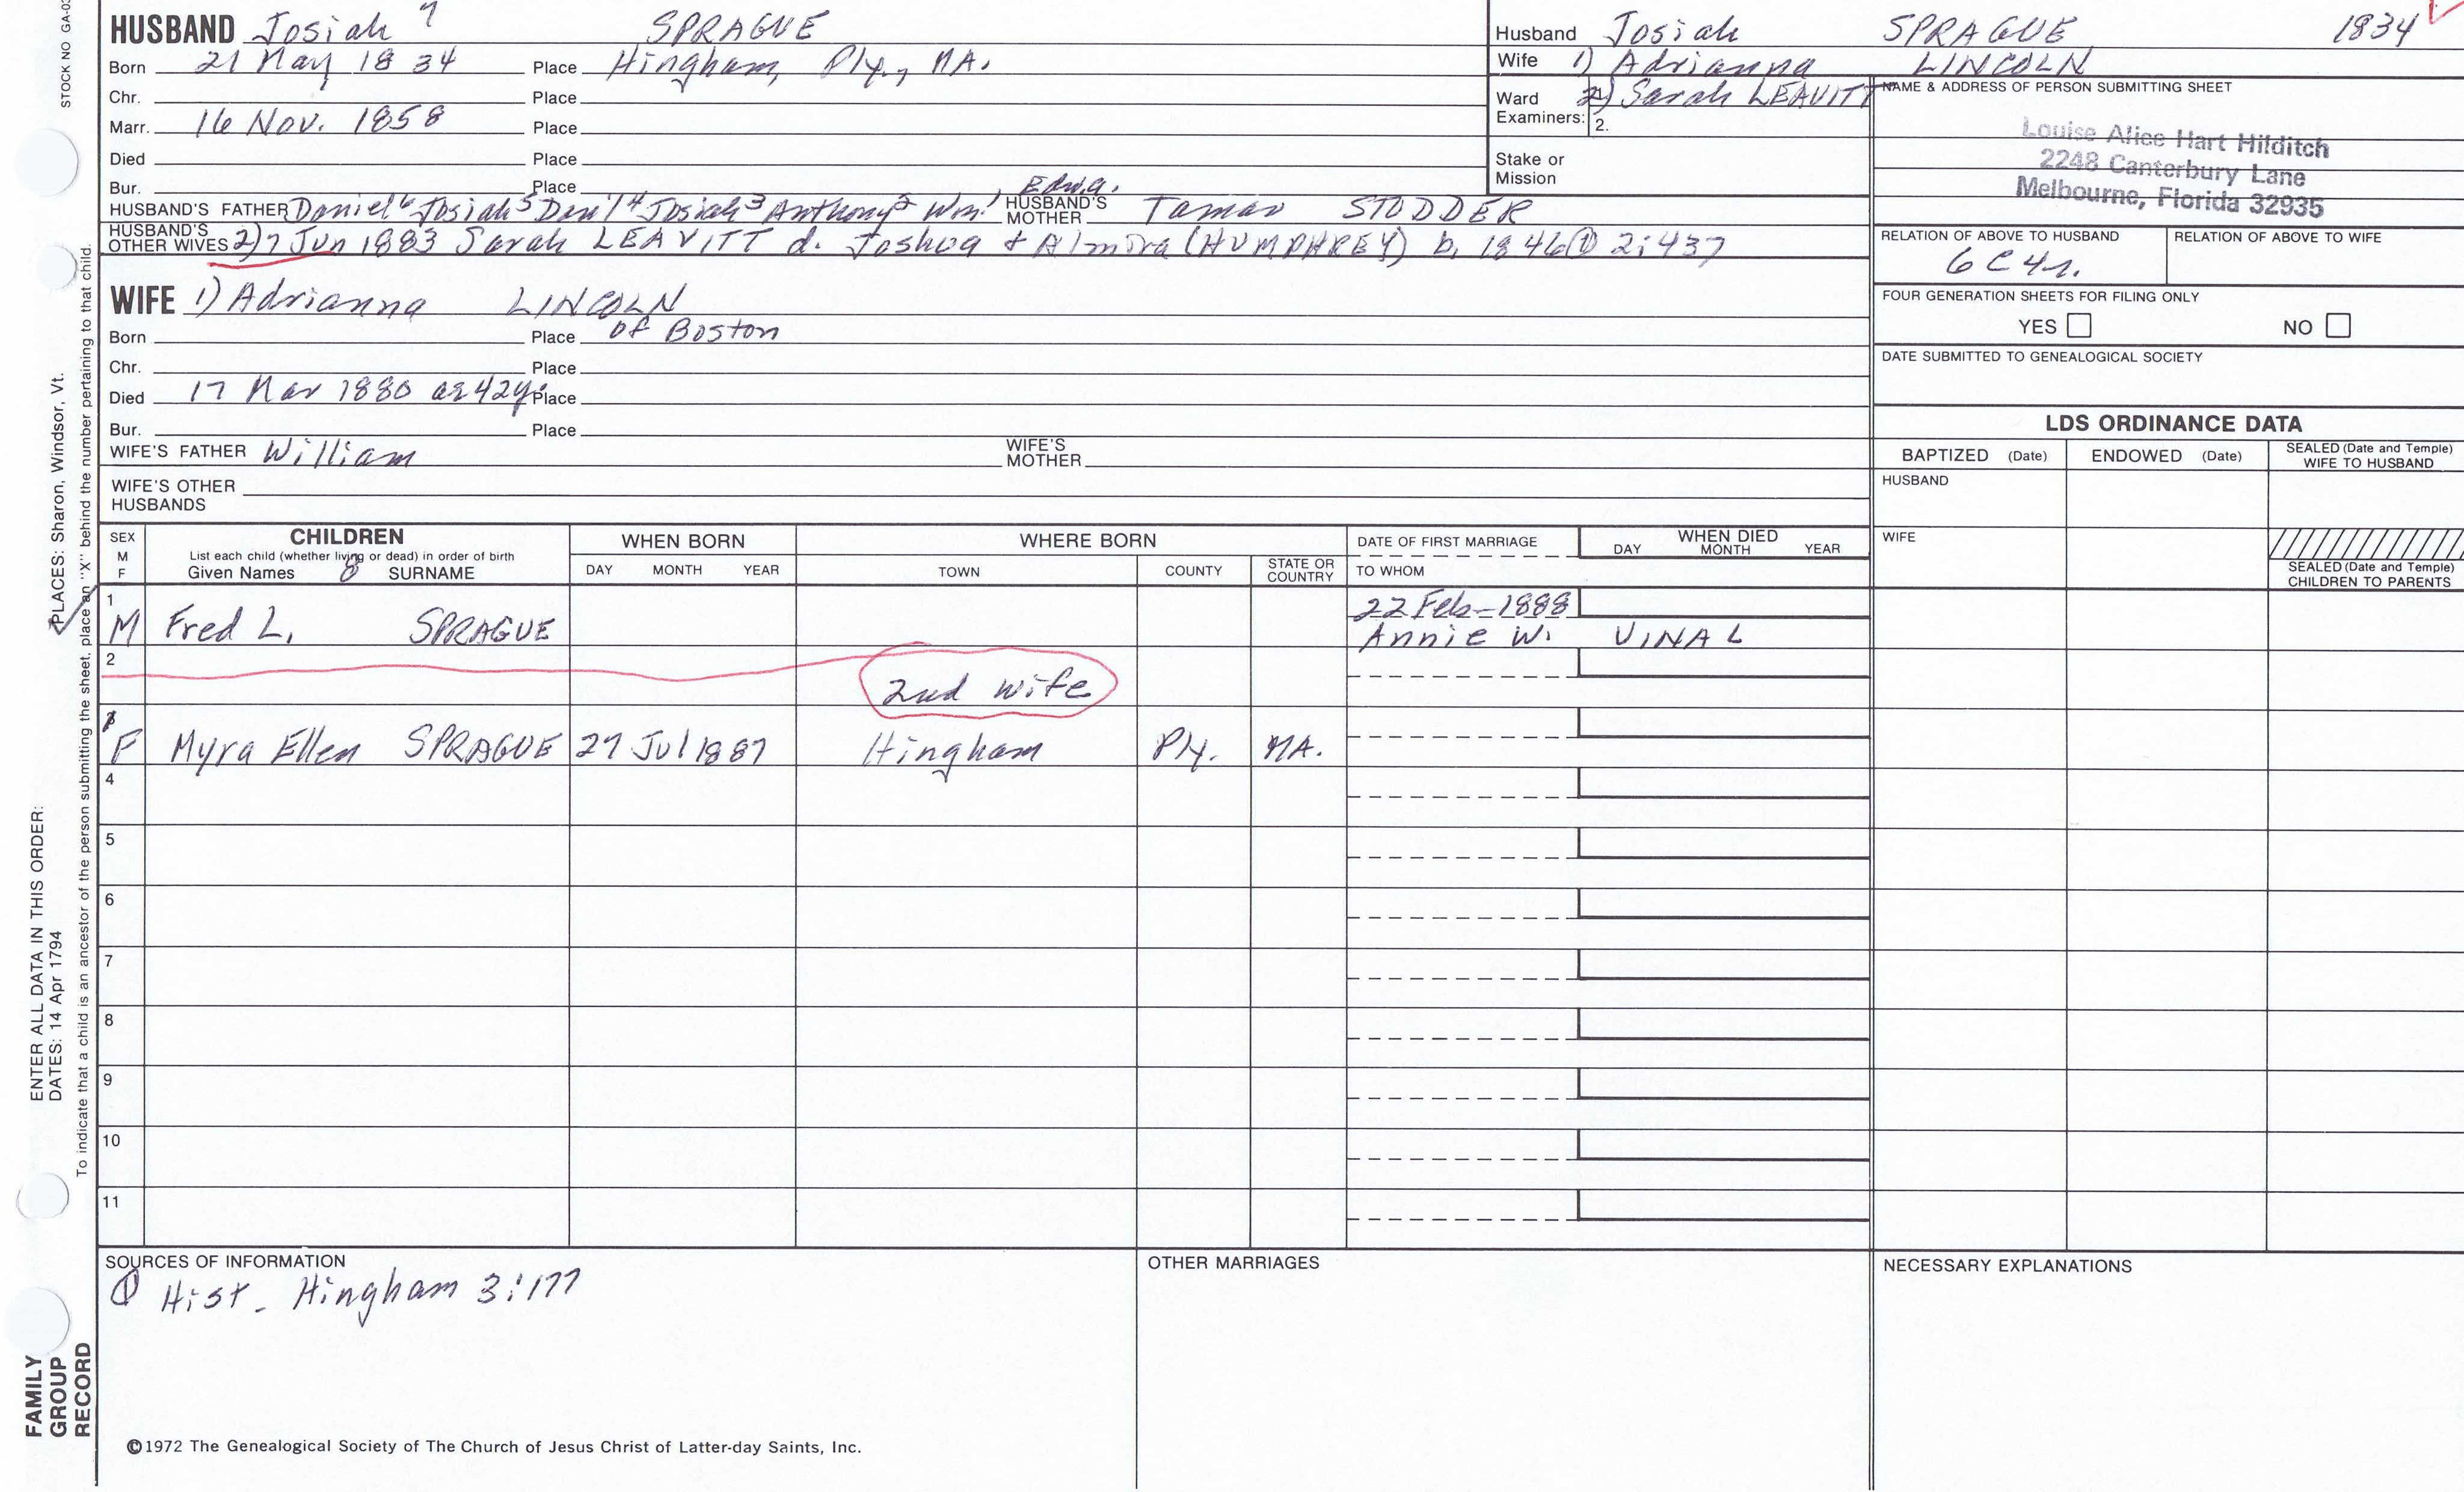 STOCK NO GA-03
HUSBAND Josiah 7 SPRAGUE
Born 21 May 1834 Place Hingham, Ply., MA.
Chr. Place
Marr. 16 Nov. 1858 Place
Died Place
Bur. Place
HUSBAND'S FATHER Daniel6 Josiah5 Dan'l4 Josiah3 Anthony2 Wm1, Edw.a. HUSBAND'S MOTHER Tamar STODDER
HUSBAND'S OTHER WIVES 2) 7 Jun 1883 Sarah LEAVITT d. Joshua & Almira (HUMPHREY) b. 1846 ① 2:437
WIFE 1) Adrianna LINCOLN
Born Place of Boston
Chr. Place
Died 17 Mar 1880 ae 42y. Place
Bur. Place
WIFE'S FATHER William WIFE'S MOTHER
WIFE'S OTHER HUSBANDS
Husband Josiah SPRAGUE 1834
Wife 1) Adrianna LINCOLN
Ward 2) Sarah LEAVITT
Examiners: 2.
Stake or
Mission
NAME & ADDRESS OF PERSON SUBMITTING SHEET
Louise Alice Hart Hilditch
2248 Canterbury Lane
Melbourne, Florida 32935
RELATION OF ABOVE TO HUSBAND RELATION OF ABOVE TO WIFE
6C4r.
FOUR GENERATION SHEETS FOR FILING ONLY
YES NO
DATE SUBMITTED TO GENEALOGICAL SOCIETY
LDS ORDINANCE DATA
BAPTIZED (Date) ENDOWED (Date) SEALED (Date and Temple) WIFE TO HUSBAND
HUSBAND
WIFE
SEALED (Date and Temple)
CHILDREN TO PARENTS
SEX M F
CHILDREN
List each child (whether living or dead) in order of birth
Given Names 8 SURNAME
WHEN BORN
DAY MONTH YEAR
WHERE BORN
TOWN COUNTY STATE OR COUNTRY
DATE OF FIRST MARRIAGE
TO WHOM
WHEN DIED
DAY MONTH YEAR
1 22 Feb-1888
M Fred L. SPRAGUE Annie W. VINAL
2
2nd wife
F Myra Ellen SPRAGUE 27 Jul 1887 Hingham Ply. MA.
4
5
6
7
8
9
10
11
SOURCES OF INFORMATION
① Hist. Hingham 3:177
OTHER MARRIAGES
NECESSARY EXPLANATIONS
©1972 The Genealogical Society of The Church of Jesus Christ of Latter-day Saints, Inc.
PLACES: Sharon, Windsor, Vt.
ENTER ALL DATA IN THIS ORDER:
DATES: 14 Apr 1794
To indicate that a child is an ancestor of the person submitting the sheet, place an "X" behind the number pertaining to that child.
FAMILY
GROUP
RECORD